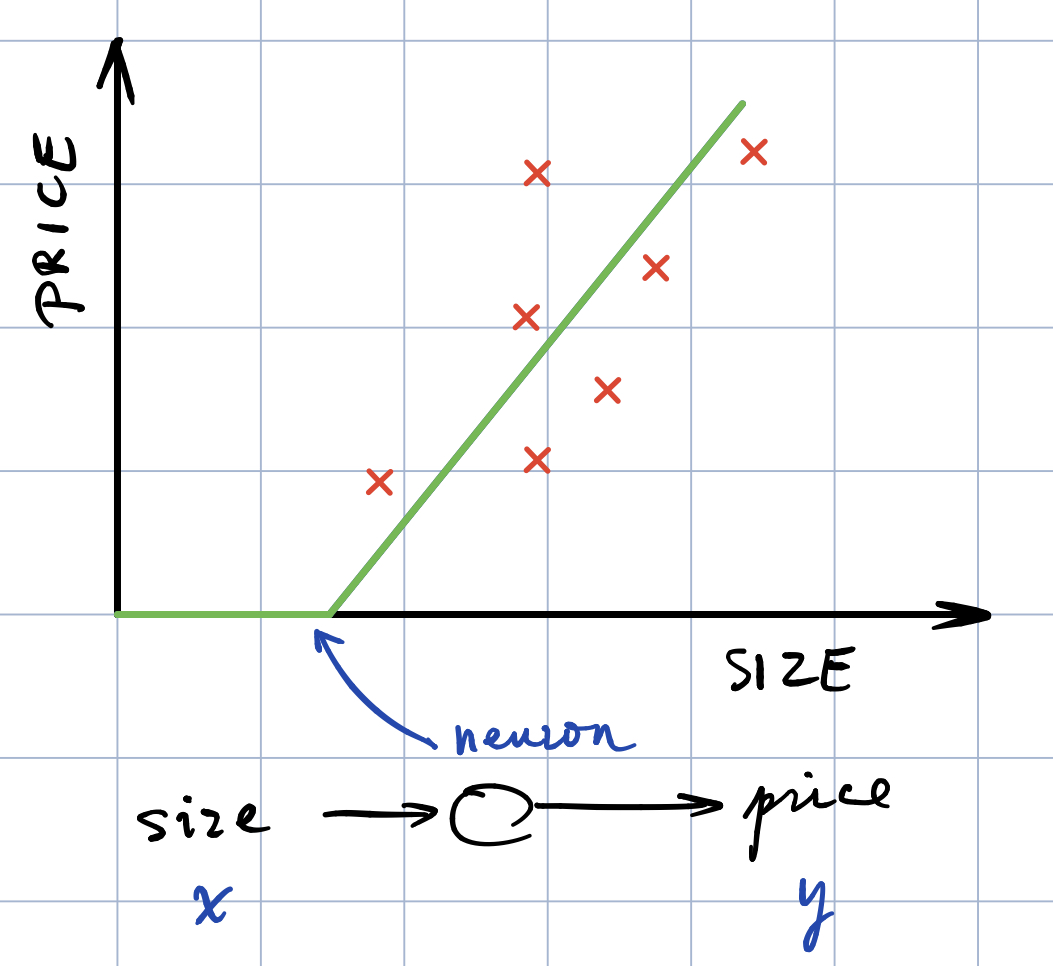 PRICE
SIZE
neuron
size → O → price
x y